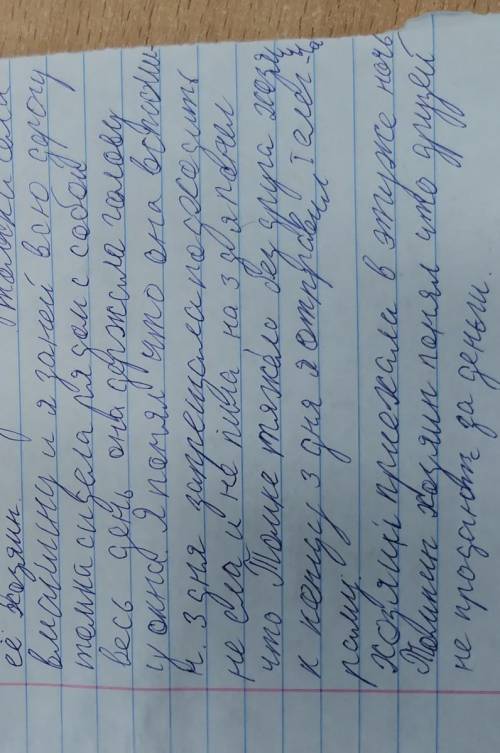 её хозяин. Томка села
вмашину и я заней всю дрогу
томка сидела рядом с собой
весь день она держила голову
у окна. Я понял что она вспоми-
н. 3 дня запрещала подходить
не ела и не пила на 3 дня понял
что Томке тяжело без друга хозя
к концу 3 дня я отправил телег-
раму.
хозяин приехала в этуже ночь
Томкин хозяин понял что друзей
не продают за деньги.